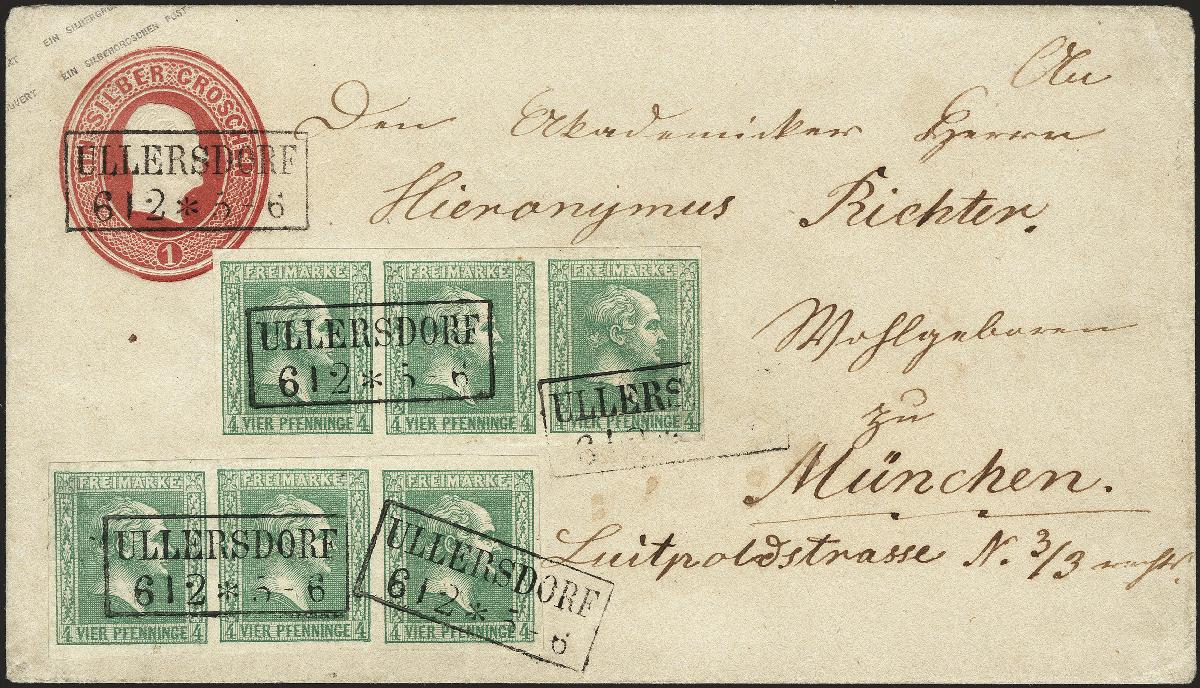 EIN SILBERGROS
EIN SILBERGROSCHEN POST
UVERT
EIN SILBER GROSCHEN
1
ULLERSDORF
6 12 * 5 - 6
An
Den Akademicker Herrn
Hieronymus Richter.
Wohlgeboren
zu
München.
Luitpoldstrasse N. 3/3 rechts.
FREIMARKE FREIMARKE FREIMARKE
ULLERSDORF
6 12 * 5 - 6
ULLERS
4 VIER PFENNINGE 4 4 VIER PFENNINGE 4 4 VIER PFENNINGE 4
FREIMARKE FREIMARKE FREIMARKE
ULLERSDORF ULLERSDORF
6 12 * 5 - 6 6 12 * 5 - 6
4 VIER PFENNINGE 4 4 VIER PFENNINGE 4 4 VIER PFENNINGE 4